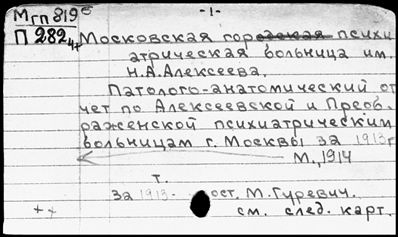 Мгп 819б
-1-
П 282 Московская го психи
атрическая больница им.
Н.А.Алексеева.
Патолого-анатомический от
чет по Алексеевской и Преоб
раженской психиатрическим
больницам г. Москвы за 1913 г
М., 1914
т.
За 1913. сост. М. Гуревич.
++ см. след. карт.